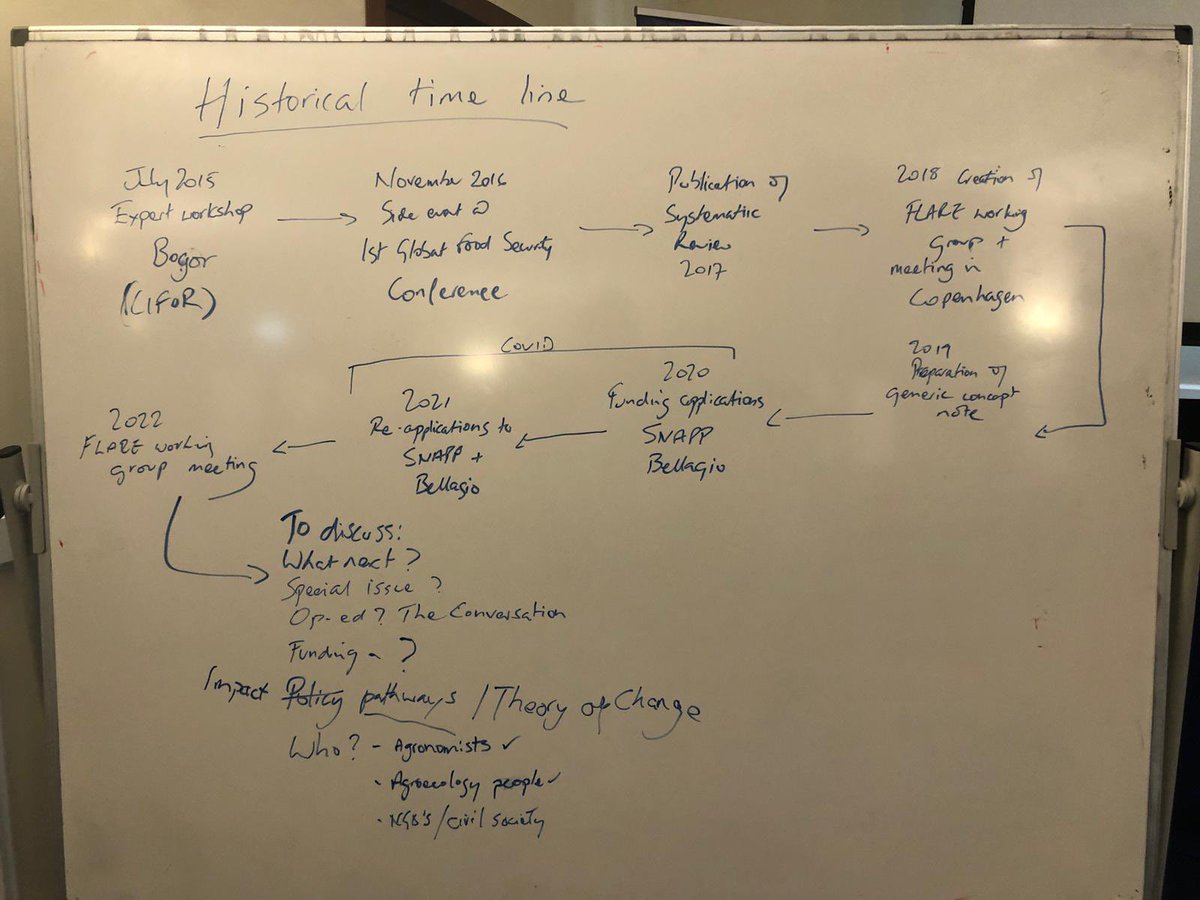 Historical time line
July 2015
Expert workshop
Bogor
(CIFOR)
November 2016
Side event @
1st Global Food Security
Conference
Publication of
Systematic
Review
2017
2018 Creation of
FLARE working
group +
meeting in
Copenhagen
2019
Preparation of
generic concept
note
COVID
2020
Funding applications
SNAPP
Bellagio
2021
Re-applications to
SNAPP +
Bellagio
2022
FLARE working
group meeting
To discuss:
What next?
Special issue?
Op-ed? The Conversation
Funding - ?
Impact Policy pathways / Theory of Change
Who? - Agronomists ✓
- Agroecology people ✓
- NGO's / civil society